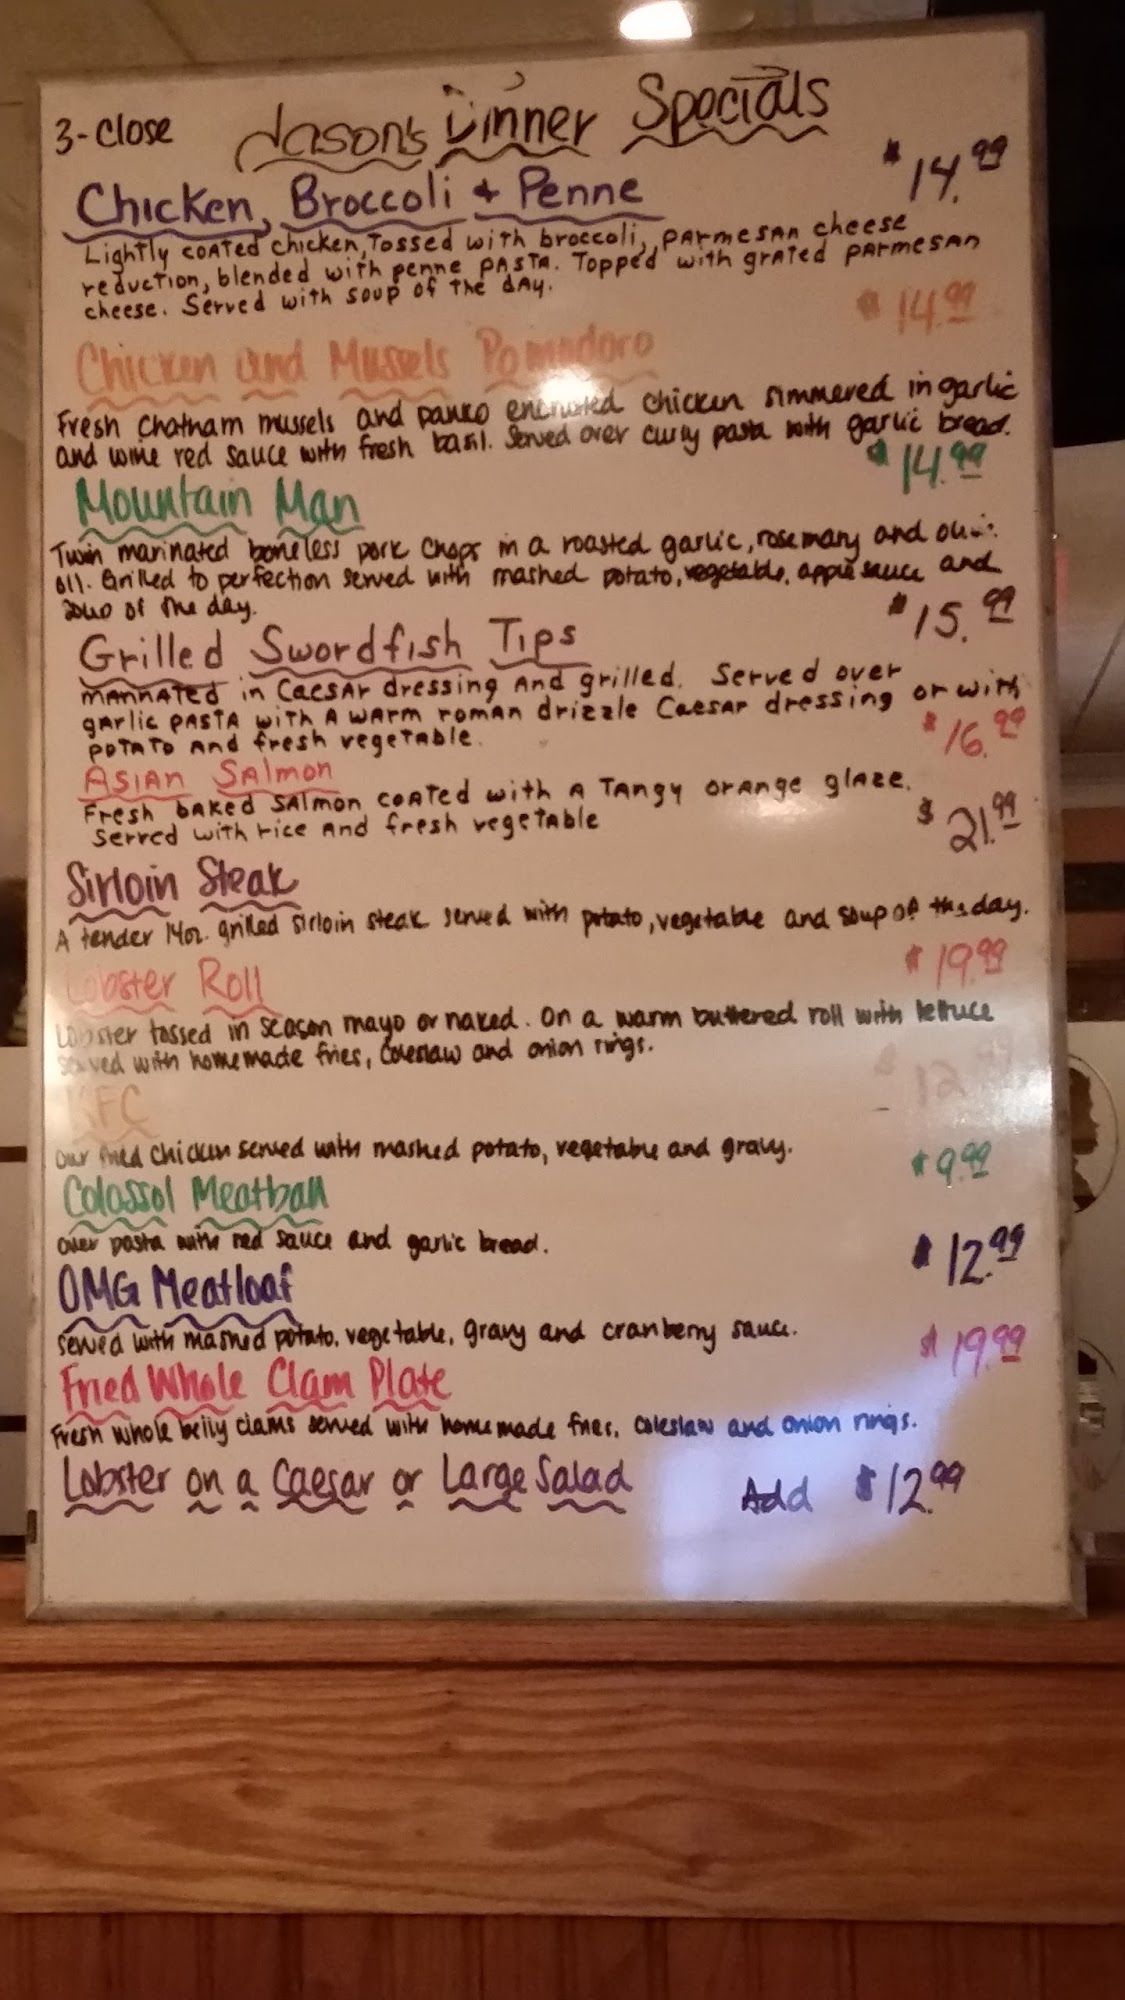 3-Close Jason's Dinner Specials
Chicken, Broccoli + Penne $14.99
Lightly coated chicken, tossed with broccoli, parmesan cheese
reduction, blended with penne pasta. Topped with grated parmesan
cheese. Served with soup of the day.
Chicken and Mussels Pomodoro $14.99
Fresh Chatham mussels and panko encrusted chicken simmered in garlic
and wine red sauce with fresh basil. Served over curly pasta with garlic bread.
Mountain Man $14.99
Twin marinated boneless pork chops in a roasted garlic, rosemary and olive
oil. Grilled to perfection served with mashed potato, vegetable, apple sauce and
soup of the day.
Grilled Swordfish Tips $15.99
marinated in Caesar dressing and grilled. Served over
garlic pasta with a warm roman drizzle Caesar dressing or with
potato and fresh vegetable.
Asian Salmon $16.99
Fresh baked salmon coated with a tangy orange glaze.
Served with rice and fresh vegetable
Sirloin Steak $21.99
A tender 14oz. grilled sirloin steak served with potato, vegetable and soup of the day.
Lobster Roll $19.99
Lobster tossed in season mayo or naked. On a warm buttered roll with lettuce
served with homemade fries, coleslaw and onion rings.
KFC $12.99
Our fried chicken served with mashed potato, vegetable and gravy.
Colassol Meatball $9.99
over pasta with red sauce and garlic bread.
OMG Meatloaf $12.99
served with mashed potato, vegetable, gravy and cranberry sauce.
Fried Whole Clam Plate $19.99
Fresh whole belly clams served with homemade fries, coleslaw and onion rings.
Lobster on a Caesar or Large Salad Add $12.99